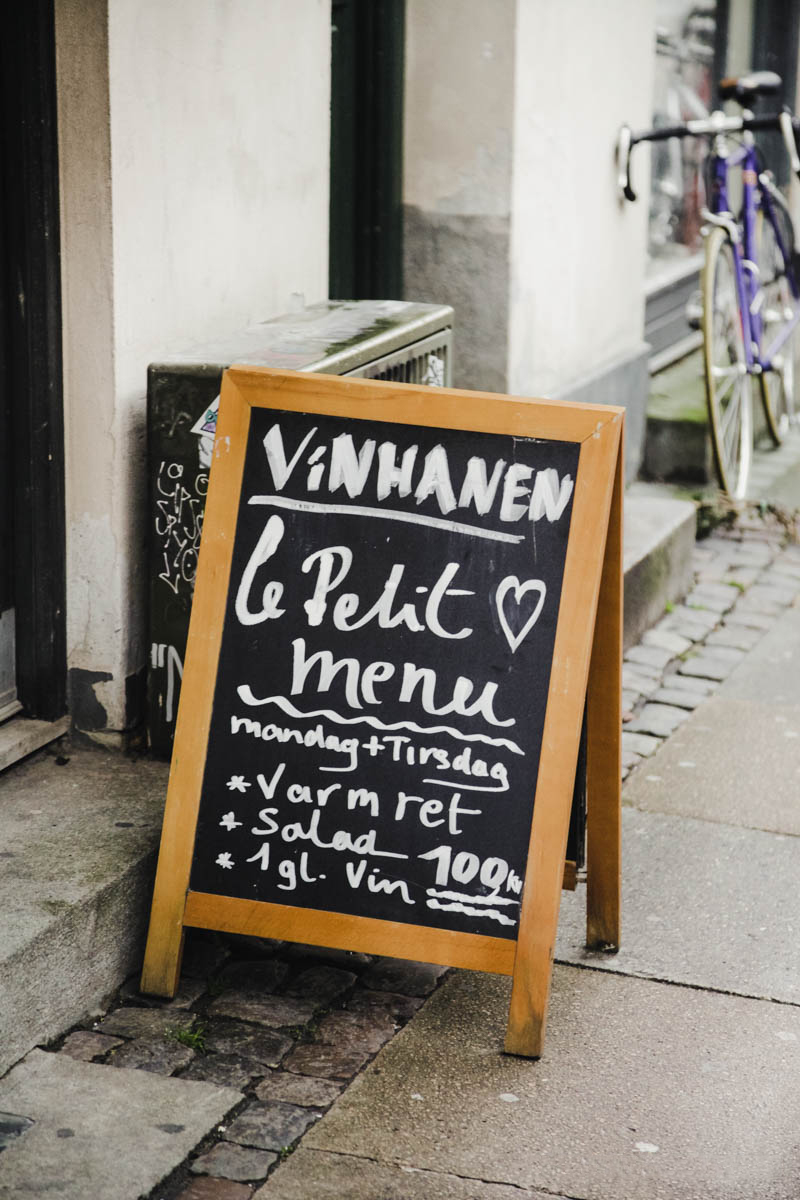 ViNHANEN
Le Petit
menu
mandag + Tirsdag
* Varm ret
* Salad
* 1 gl. Vin 100 kr